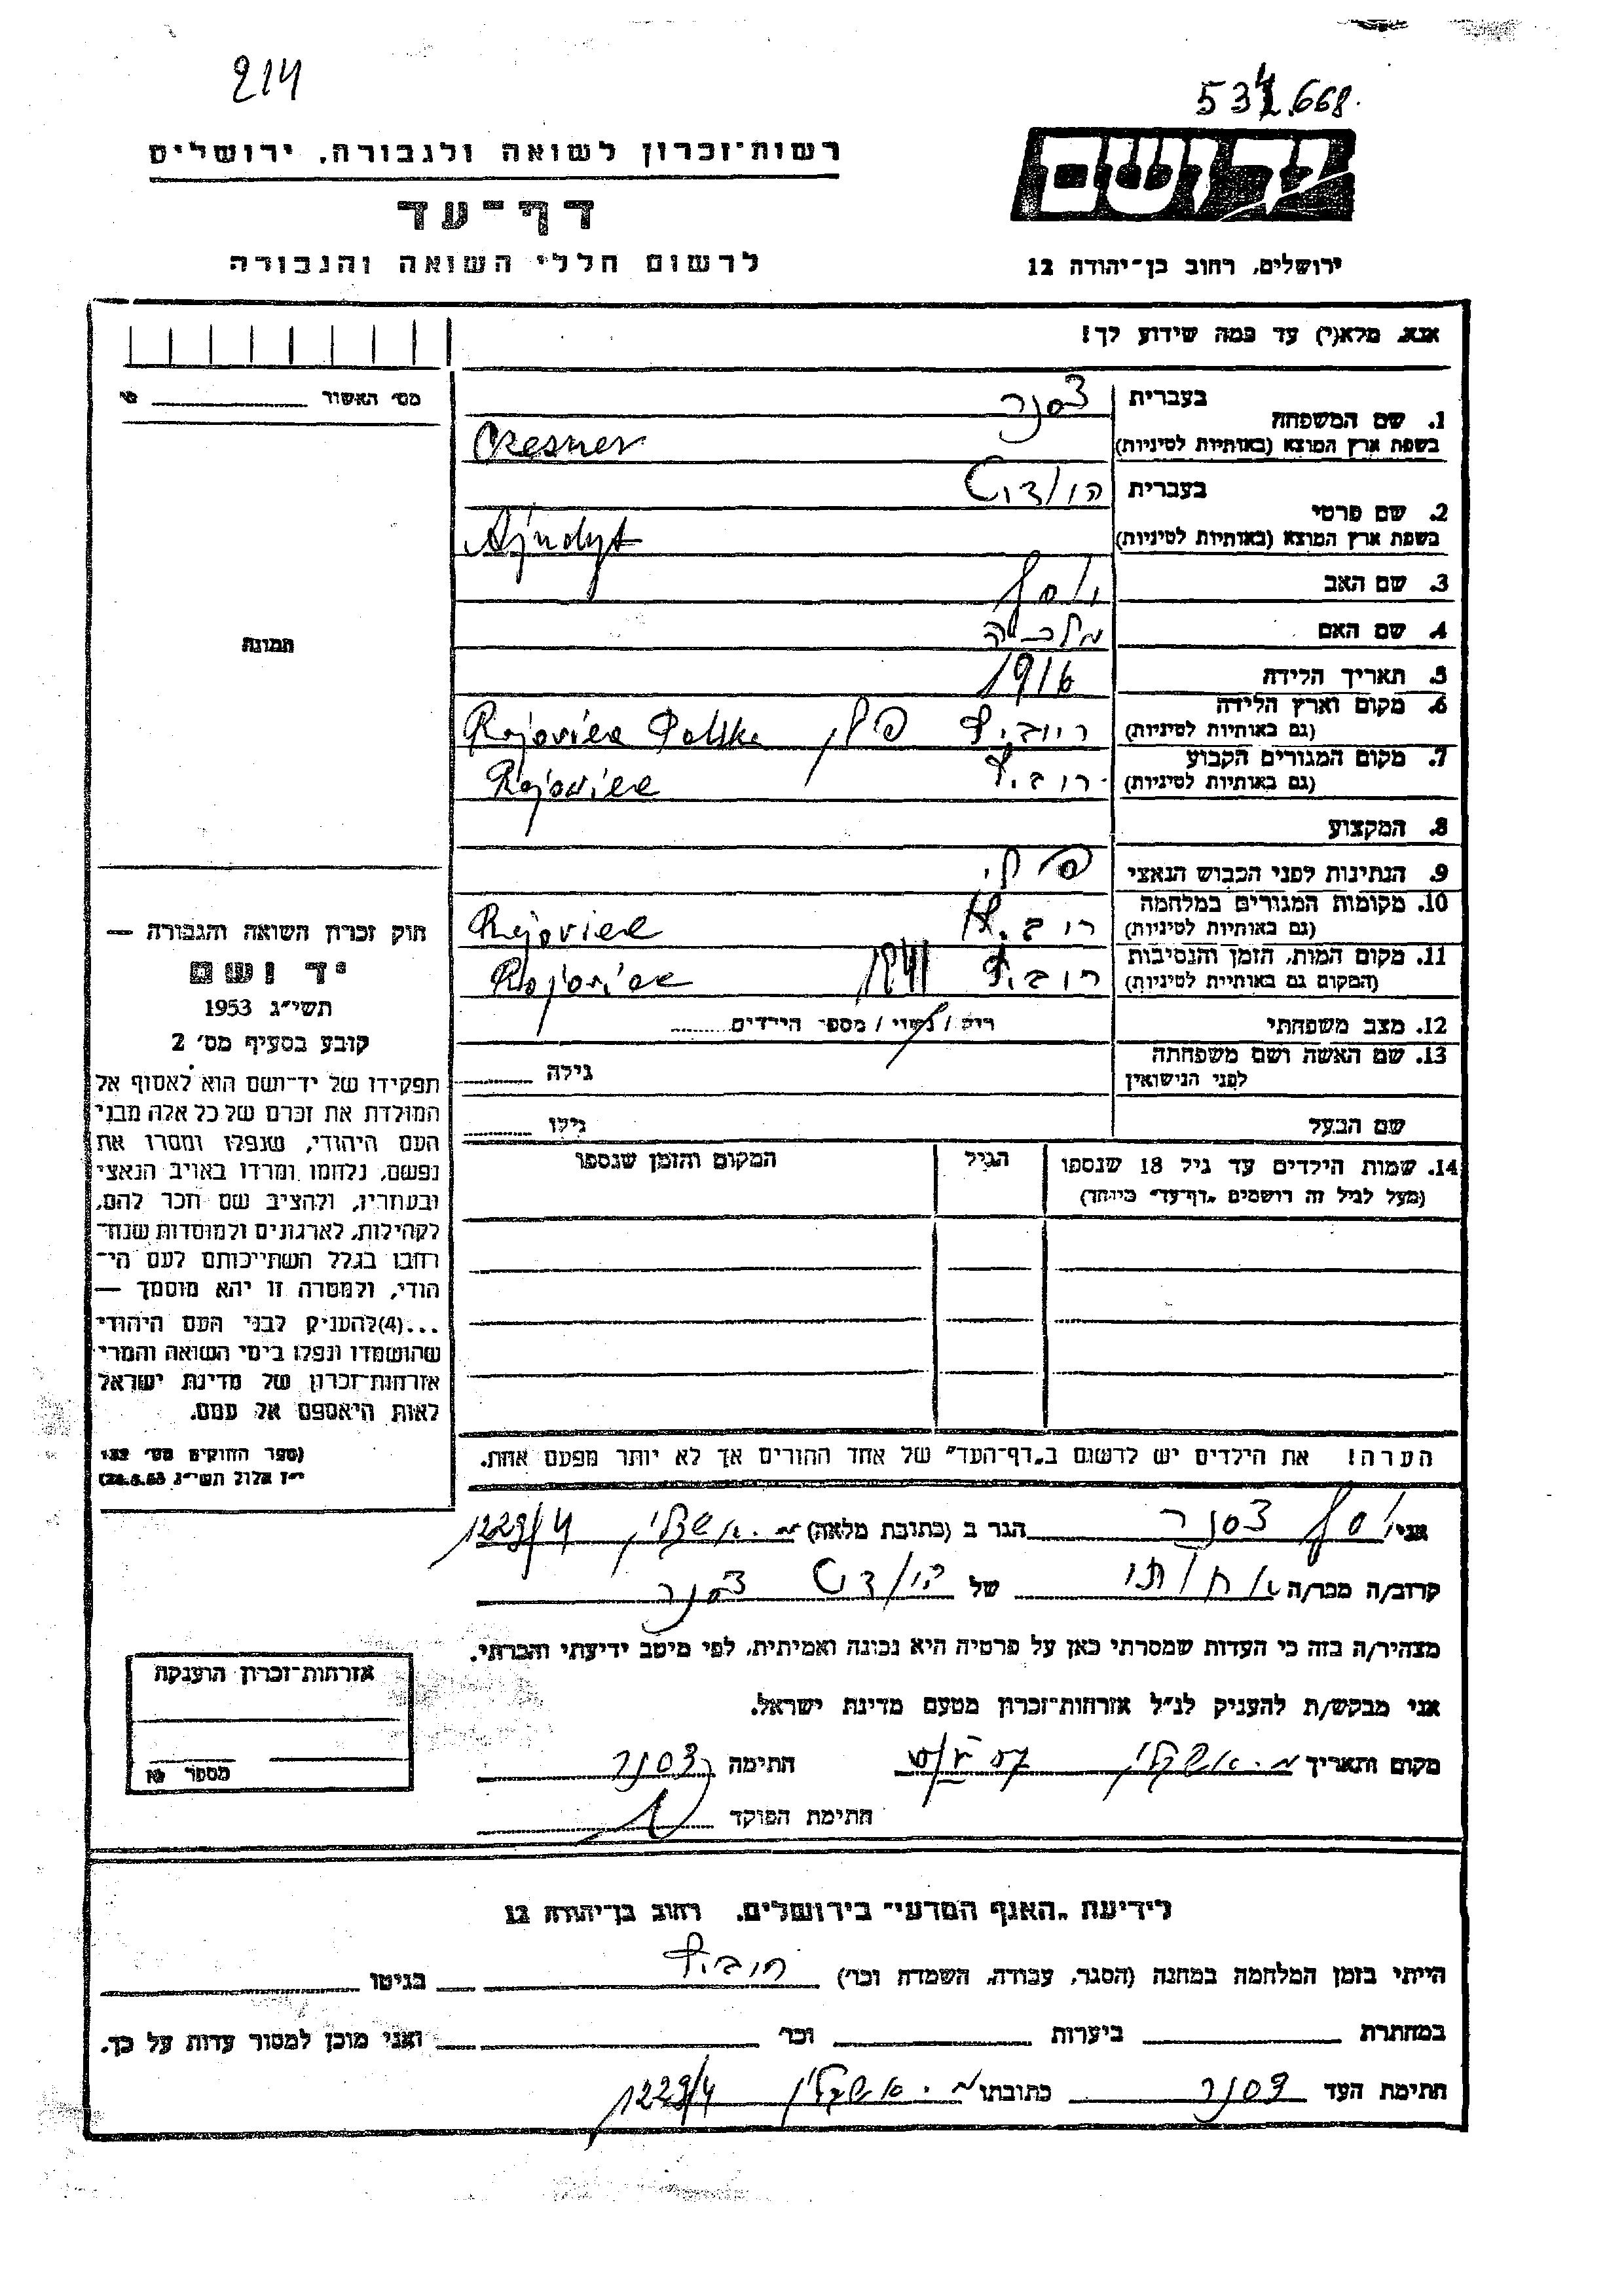 214
534.668
רשות־זכרון לשואה ולגבורה, ירושלים
דף־עד
לרשום חללי השואה והגבורה
יד ושם
ירושלים, רחוב בן־יהודה 12
אנא, מלא(י) עד כמה שידוע לך!
מס׳ האשור
1. שם המשפחה
בעברית
צסנר
בשפת ארץ המוצא (באותיות לטיניות)
Czesner
2. שם פרטי
בעברית
בשפת ארץ המוצא (באותיות לטיניות)
Ajndyt
3. שם האב
יוסף
4. שם האם
מלכה
5. תאריך הלידה
1916
6. מקום וארץ הלידה
(גם באותיות לטיניות)
פולין Polska
7. מקום המגורים הקבוע
(גם באותיות לטיניות)
8. המקצוע
9. הנתינות לפני הכבוש הנאצי
פולני
10. מקומות המגורים במלחמה
(גם באותיות לטיניות)
11. מקום המות, הזמן והנסיבות
(המקום גם באותיות לטיניות)
1941
12. מצב משפחתי
רוק / נשוי / מספר הילדים
13. שם האשה ושם משפחתה
לפני הנישואין
גילה
שם הבעל
גילו
14. שמות הילדים עד גיל 18 שנספו
(מעל לגיל זה רושמים „דף־עד״ מיוחד)
הגיל
המקום והזמן שנספו
הערה! את הילדים יש לרשום ב„דף־העד״ של אחד ההורים אך לא יותר מפעם אחת.
תמונה
חוק זכרון השואה והגבורה —
יד ושם
תשי״ג 1953
קובע בסעיף מס׳ 2
תפקידו של יד־ושם הוא לאסוף אל
המולדת את זכרם של כל אלה מבני
העם היהודי, שנפלו ומסרו את
נפשם, נלחמו ומרדו באויב הנאצי
ובעוזריו, ולהציב שם וזכר להם,
לקהילות, לארגונים ולמוסדות שנח־
רבו בגלל השתייכותם לעם הי־
הודי, ולמטרה זו יהא מוסמך —
...(4) להעניק לבני העם היהודי
שהושמדו ונפלו בימי השואה והמרי
אזרחות־זכרון של מדינת ישראל
לאות היאספם אל עמם.
(ספר החוקים מס׳ 132
י״ז אלול תשי״ג 28.8.53)
אני יוסף צסנר הגר ב (כתובת מלאה) מ. אשקלון 1229/4
קרוב/ה מכר/ה אחותי של צסנר
מצהיר/ה בזה כי העדות שמסרתי כאן על פרטיה היא נכונה ואמיתית, לפי מיטב ידיעתי והכרתי.
אני מבקש/ת להעניק לנ״ל אזרחות־זכרון מטעם מדינת ישראל.
מקום ותאריך מ. אשקלון חתימה צסנר
חתימת הפוקד
אזרחות־זכרון הוענקה
מספר
לידיעת „האגף המדעי״ בירושלים, רחוב בן־יהודה 12
הייתי בזמן המלחמה במחנה (הסגר, עבודה, השמדה וכו׳) בגיטו
במחתרת ביערות וכו׳ ואני מוכן למסור עדות על כך.
חתימת העד צסנר כתובתו מ. אשקלון 1229/4